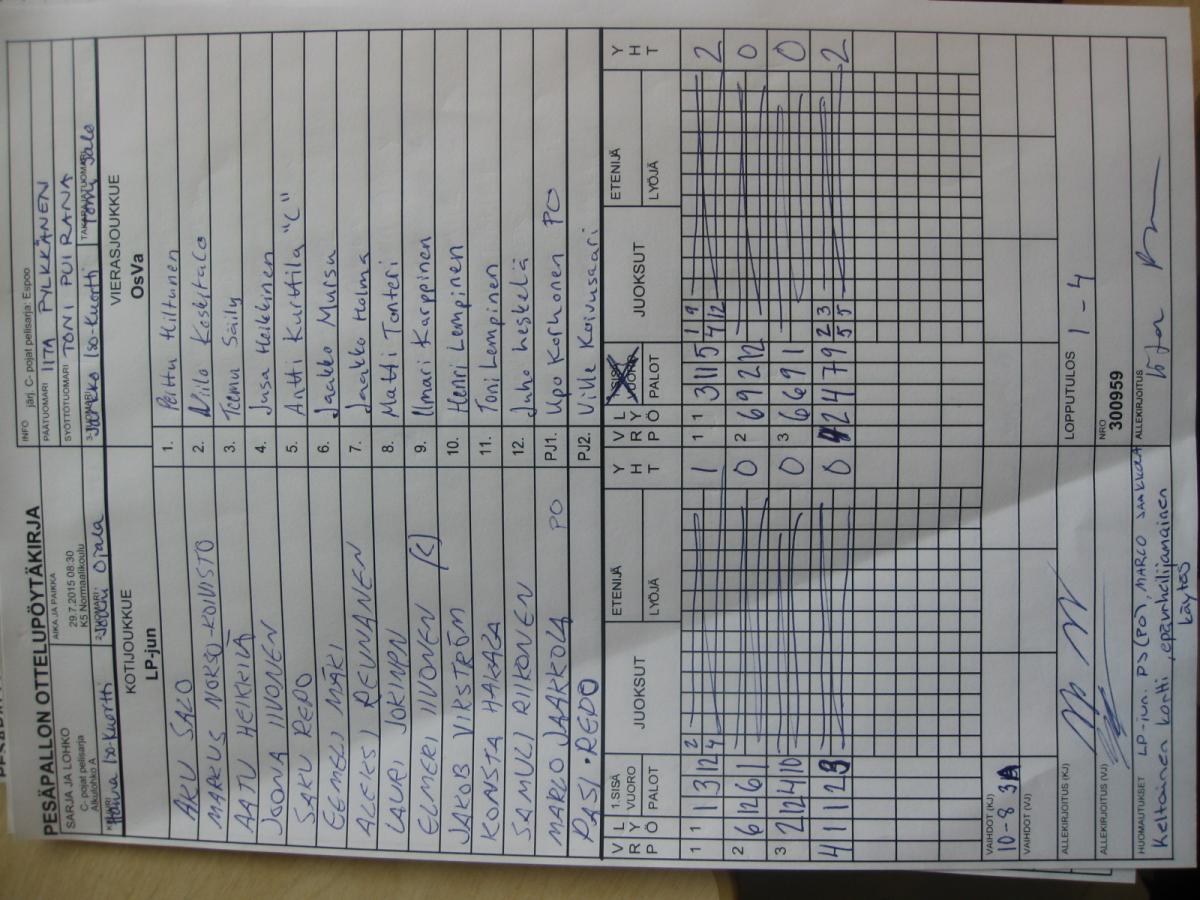 PESÄPALLON OTTELUPÖYTÄKIRJA
SARJA JA LOHKO
C- pojat pelisarja
Alkulohko A
AIKA JA PAIKKA
29.7.2015 08:30
K5 Normaalikoulu
INFO järj. C- pojat pelisarja: Espoo
PÄÄTUOMARI IITA PYLKKÄNEN
SYÖTTÖTUOMARI TONI PUIRANA
Iso-Kuortti
2-TUOMARI Ojala
3-TUOMARI Jarkko Iso-Kuortti
TAKARAJATUOMARI Tomi Salo
KOTIJOUKKUE
LP-jun
VIERASJOUKKUE
OsVa
AKU SALO 1. Pettu Hiltunen
MARKUS NOKSO-KOIVISTO 2. Niilo Koskitalo
AATU HEIKKILÄ 3. Teemu Säily
JOONA IIVONEN 4. Jusa Heikkinen
SAKU REDO 5. Antti Kurttila "C"
EEMELI MÄKI 6. Jaakko Mursu
ALEKSI REUNANEN 7. Jaakko Holma
LAURI JOKINEN 8. Matti Tonteri
ELMERI IIVONEN (C) 9. Ilmari Karppinen
JAKOB VIKSTRÖM 10. Henri Lempinen
KONSTA HAKALA 11. Toni Lempinen
SAMULI RIIKONEN 12. Juho Leskelä
MARCO JAAKKOLA PO PJ1. Upo Korhonen PO
PASI REDO PJ2. Ville Koivusaari
VRP LYÖ 1.SISÄ VUORO PALOT JUOKSUT ETENIJÄ LYÖJÄ YHT VRP LYÖ PALOT JUOKSUT ETENIJÄ LYÖJÄ YHT
1 1 1 3 12 2 4 1 1 1 3 11 5 1 9 4 12 2
2 6 12 6 1 0 2 6 9 2 12 0
3 2 12 4 10 0 3 6 6 9 1 0
4 1 1 12 8 0 4 2 4 7 9 2 3 5 5 2
VAIHDOT (KJ)
10-8
VAIHDOT (VJ)
ALLEKIRJOITUS (KJ)
LOPPUTULOS 1 - 4
ALLEKIRJOITUS (VJ)
NRO
300959
HUOMAUTUKSET LP-jun. PJ (PO), MARCO JAAKKOLA
Keltainen kortti, epäurheilijamainen
käytös
ALLEKIRJOITUS